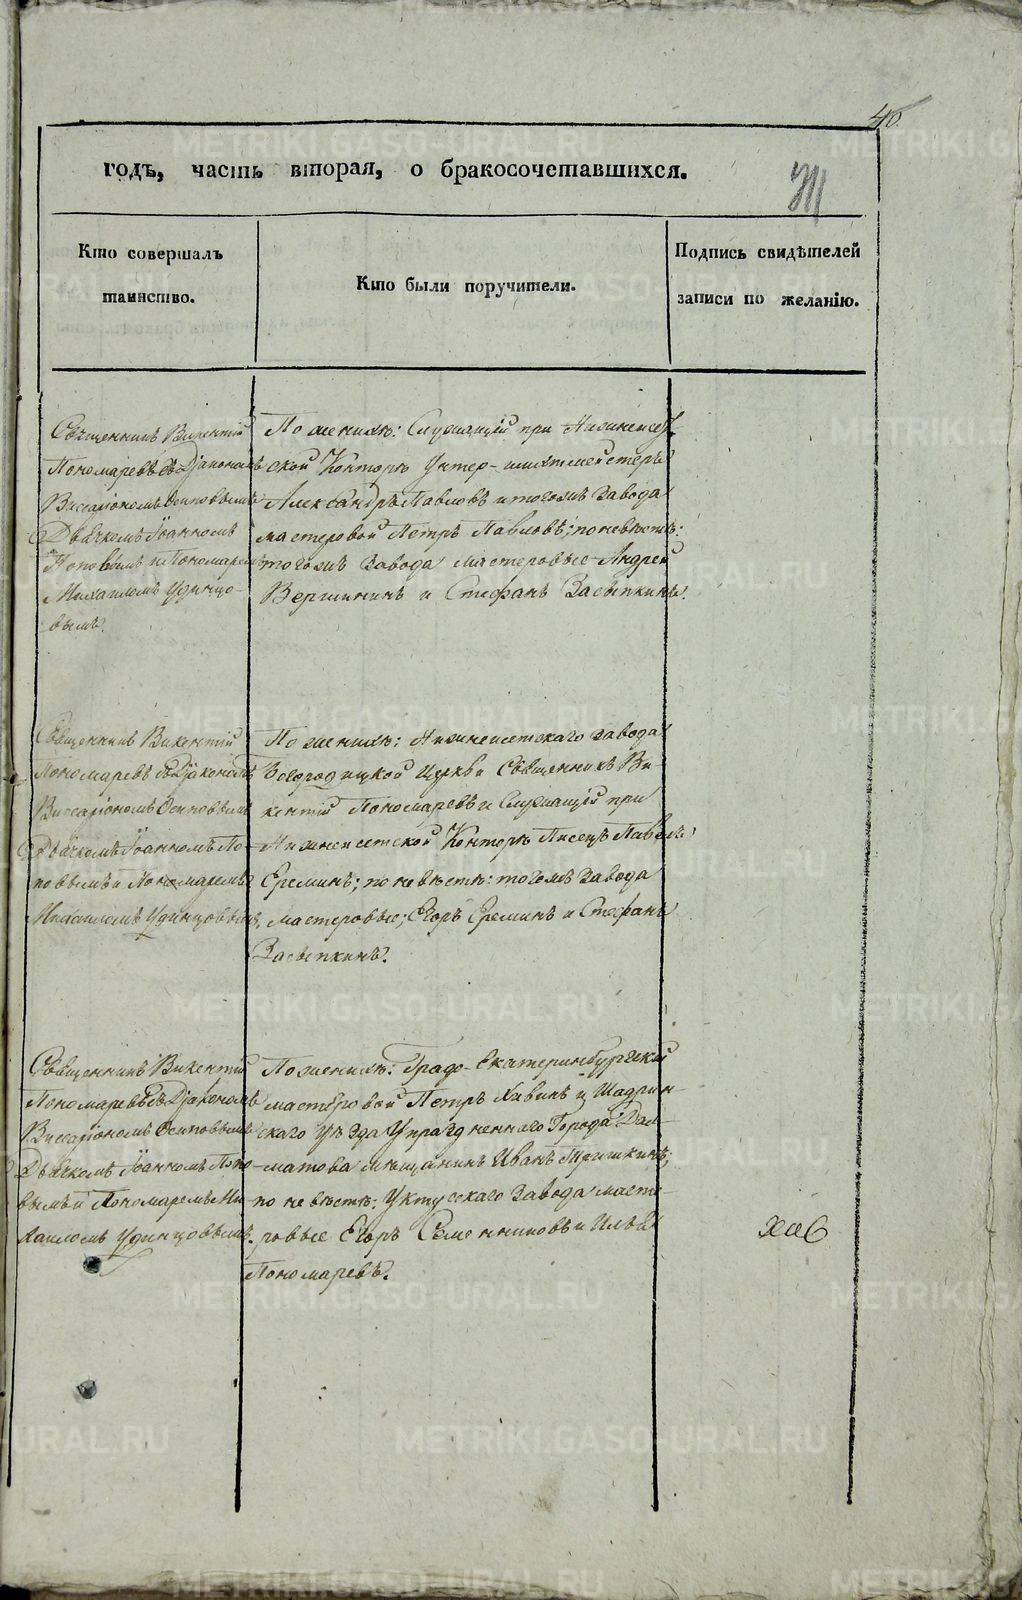 40.
годъ, часть вторая, о бракосочетавшихся.
Кто совершалъ
таинство.
Кто были поручители.
Подпись свидѣтелей
записи по желанію.
Священникъ Викентій
Пономаревъ съ Діакономъ
Виссаріономъ Осиповымъ
Дьячкомъ Іоанномъ
Поповымъ и Пономаремъ
Михаиломъ Удинцо-
вымъ.
По женихѣ: Служащій при Нижнеисет-
ской Конторѣ Унтер-шихтмейстеръ
Александръ Павловъ и тогожъ завода
мастеровой Петръ Павловъ; по невѣстѣ:
тогожъ завода мастеровые Андрей
Вершининъ и Стефанъ Засыпкинъ.
Священникъ Викентій
Пономаревъ съ Діакономъ
Виссаріономъ Осиповымъ
Дьячкомъ Іоанномъ По-
повымъ и Пономаремъ
Михаиломъ Удинцовымъ.
По женихѣ: Нижнеисетскаго завода
Богородицкой Церкви Священникъ Ви-
кентій Пономаревъ и Служащій при
Нижнеисетской Конторѣ Писецъ Павелъ
Ереминъ; по невѣстѣ: тогожъ завода
мастеровые; Егоръ Ереминъ и Стефанъ
Засыпкинъ.
Священникъ Викентій
Пономаревъ съ Діакономъ
Виссаріономъ Осиповымъ
Дьячкомъ Іоанномъ Попо-
вымъ и Пономаремъ Ми-
хаиломъ Удинцовымъ.
По женихѣ: Градо-Екатеринбургскій
мастеровой Петръ Хивинъ и Шадрин-
скаго уѣзда Упраздненнаго Города Дал-
матова мѣщанинъ Иванъ
по невѣстѣ: Уктусскаго завода масте-
ровые Егоръ Семенниковъ и Илья
Пономаревъ.
METRIKI.GASO-URAL.RU